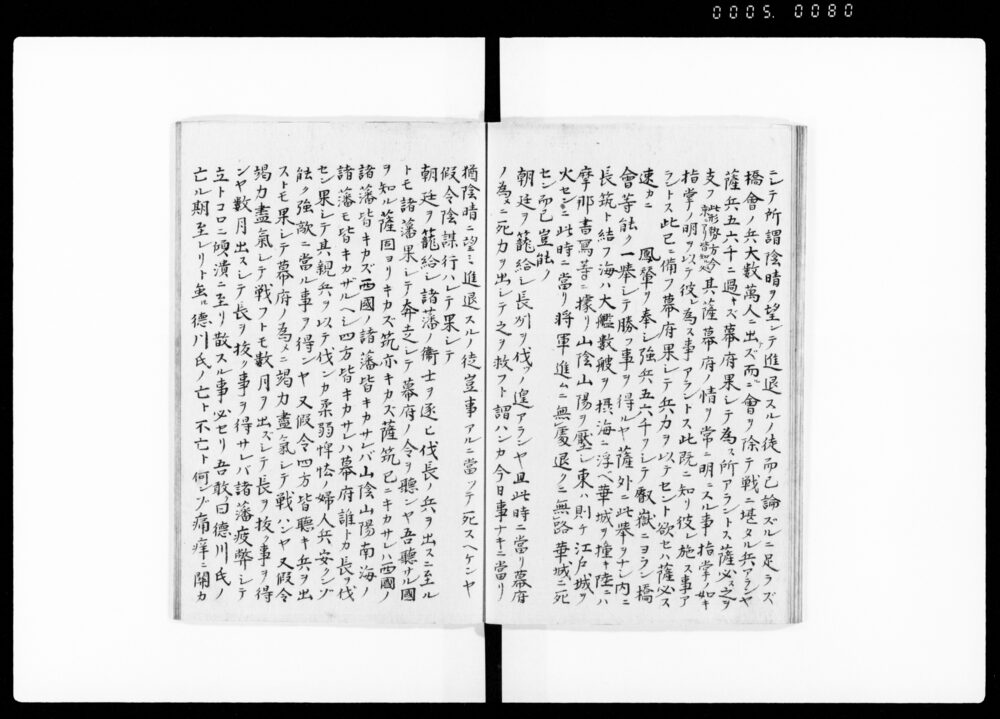 0005. 0080
ニシテ所謂陰晴ヲ望シテ進退スルノ徒而已論ズルニ足ラズ
橋會ノ兵大数萬人ニ出ズ而シ會ヲ除テ戦ニ堪タル兵アランヤ
薩兵五六千ニ過キズ幕府果シテ為ス所アラントス薩必ス之ヲ
支フ 其薩幕府ノ情ヲ常ニ明ニスル事指掌ノ如キ
指掌ノ明ヲ以テ彼レ為ス事アラントス此既ニ知リ彼レ施ス事ア
ラントス此已ニ備フ幕府果シテ兵力ヲ以テセント欲セハ薩必ス
速カニ 鳳輦ヲ奉シ強兵五六千ヲシテ叡嶽ニヨラシ橋
會等能ク一挙シテ勝フ事ヲ得ルヤ薩外ニ此挙ヲナシ内ニ
長筑ト結フ海ハ大艦数艘ヲ摂海ニ浮ベ華城ヲ撞キ陸ニハ
摩那書寫等ニ據リ山陰山陽ヲ壓シ東ハ則チ江戸城ヲ
火センニ此時ニ當リ将軍進ムニ無處退クニ無路華城ニ死
セン而已豈能ク
朝廷ヲ籠絡シ長州ヲ伐ツノ遑アランヤ且此時ニ當リ幕府
ノ為メニ死力ヲ出シテ之ヲ救フト謂ハンカ今日事ナキニ當リ
猶陰晴ニ望ミ進退スルノ徒豈事アルニ當ツテ死スヘケンヤ
假令陰謀行ハレテ果シテ
朝廷ヲ籠絡シ諸藩ノ衛士ヲ逐ヒ伐長ノ兵ヲ出スニ至ル
トモ諸藩果シテ奔走シテ幕府ノ令ヲ聽ンヤ吾聽サル國
ヲ知ル薩固ヨリキカズ筑亦キカズ薩筑已ニキカサレハ西國ノ
諸藩皆キカズ西國ノ諸藩皆キカサレバ山陰山陽南海ノ
諸藩モ皆キカザルヘシ四方皆キカサレハ幕府誰トカ長ヲ伐
セン果シテ其親兵ヲ以テ伐ンカ柔弱怯ノ婦人兵安クンゾ
能ク強敵ニ當ル事ヲ得ンヤ又假令四方皆聽キ兵ヲ出
ストモ果シテ幕府ノ為メニ竭力盡氣シテ戦ハンヤ又假令
竭力盡氣シテ戦フトモ数月ヲ出ズシテ長ヲ抜ク事ヲ得
ンヤ数月出スシテ長ヲ抜ク事ヲ得サレバ諸藩疲弊シテ
立トコロニ頽潰ニ至リ散スル事必セリ吾敢曰徳川氏ノ
亡ル期至レリト虽𪜈徳川氏ノ亡ト不亡ト何ンゾ痛痒ニ関カ